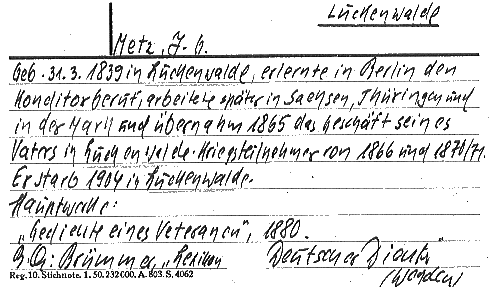 Luckenwalde
Metz, J. G.
Geb. 31.3.1839 in Luckenwalde, erlernte in Berlin den
Konditorberuf, arbeitete später in Sachsen, Thüringen und
in der Mark und übernahm 1865 das Geschäft seines
Vaters in Luckenwalde. Kriegsteilnehmer von 1866 und 1870/71.
Er starb 1904 in Luckenwalde.
Hauptwerke:
„Gedichte eines Veteranen", 1880.
Brümmer, „Lexikon Deutscher Dicht."
Reg. 10. Stichnote. 1. 50. 232 000. A. 803. S. 4062